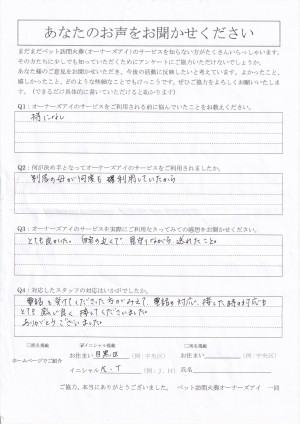 あなたのお声をお聞かせください
まだまだペット訪問火葬(オーナーズアイ)のサービスを知らない方がたくさんいらっしゃいます。
その方たちに少しでも知っていただくためにアンケートにご協力いただけないでしょうか。
あなた様のご意見をお聞かせいただき、今後の活動に反映したいと考えています。よかったこと、
嬉しかったこと、どのような些細なことでもけっこうです。ぜひご協力をよろしくお願いいたします。(できるだけ具体的に書いていただけると助かります)
Q1:オーナーズアイのサービスをご利用される前に悩んでいたことをお教えください。
特になし
Q2:何が決め手となってオーナーズアイのサービスをご利用されましたか。
別居の母が何度も利用していたから
Q3:オーナーズアイのサービスを実際にご利用なさってみての感想をお聞かせください。
とても良かった。自宅の近くで見守りながら送れたこと。
Q4:対応したスタッフの対応はいかがでしたか。
電話を受けてくださった方がみえて、電話の対応、接した時の対応も
とても感じ良く接してくださいました。
ありがとうございました。
□匿名掲載 ☑イニシャル掲載 □実名掲載
ホームページでご紹介
お住まい 目黒区 (例:中央区) お住まい (例:中央区)
イニシャル K・T (例:J.H) 氏名
ご協力、本当にありがとうございました。 ペット訪問火葬オーナーズアイ 一同